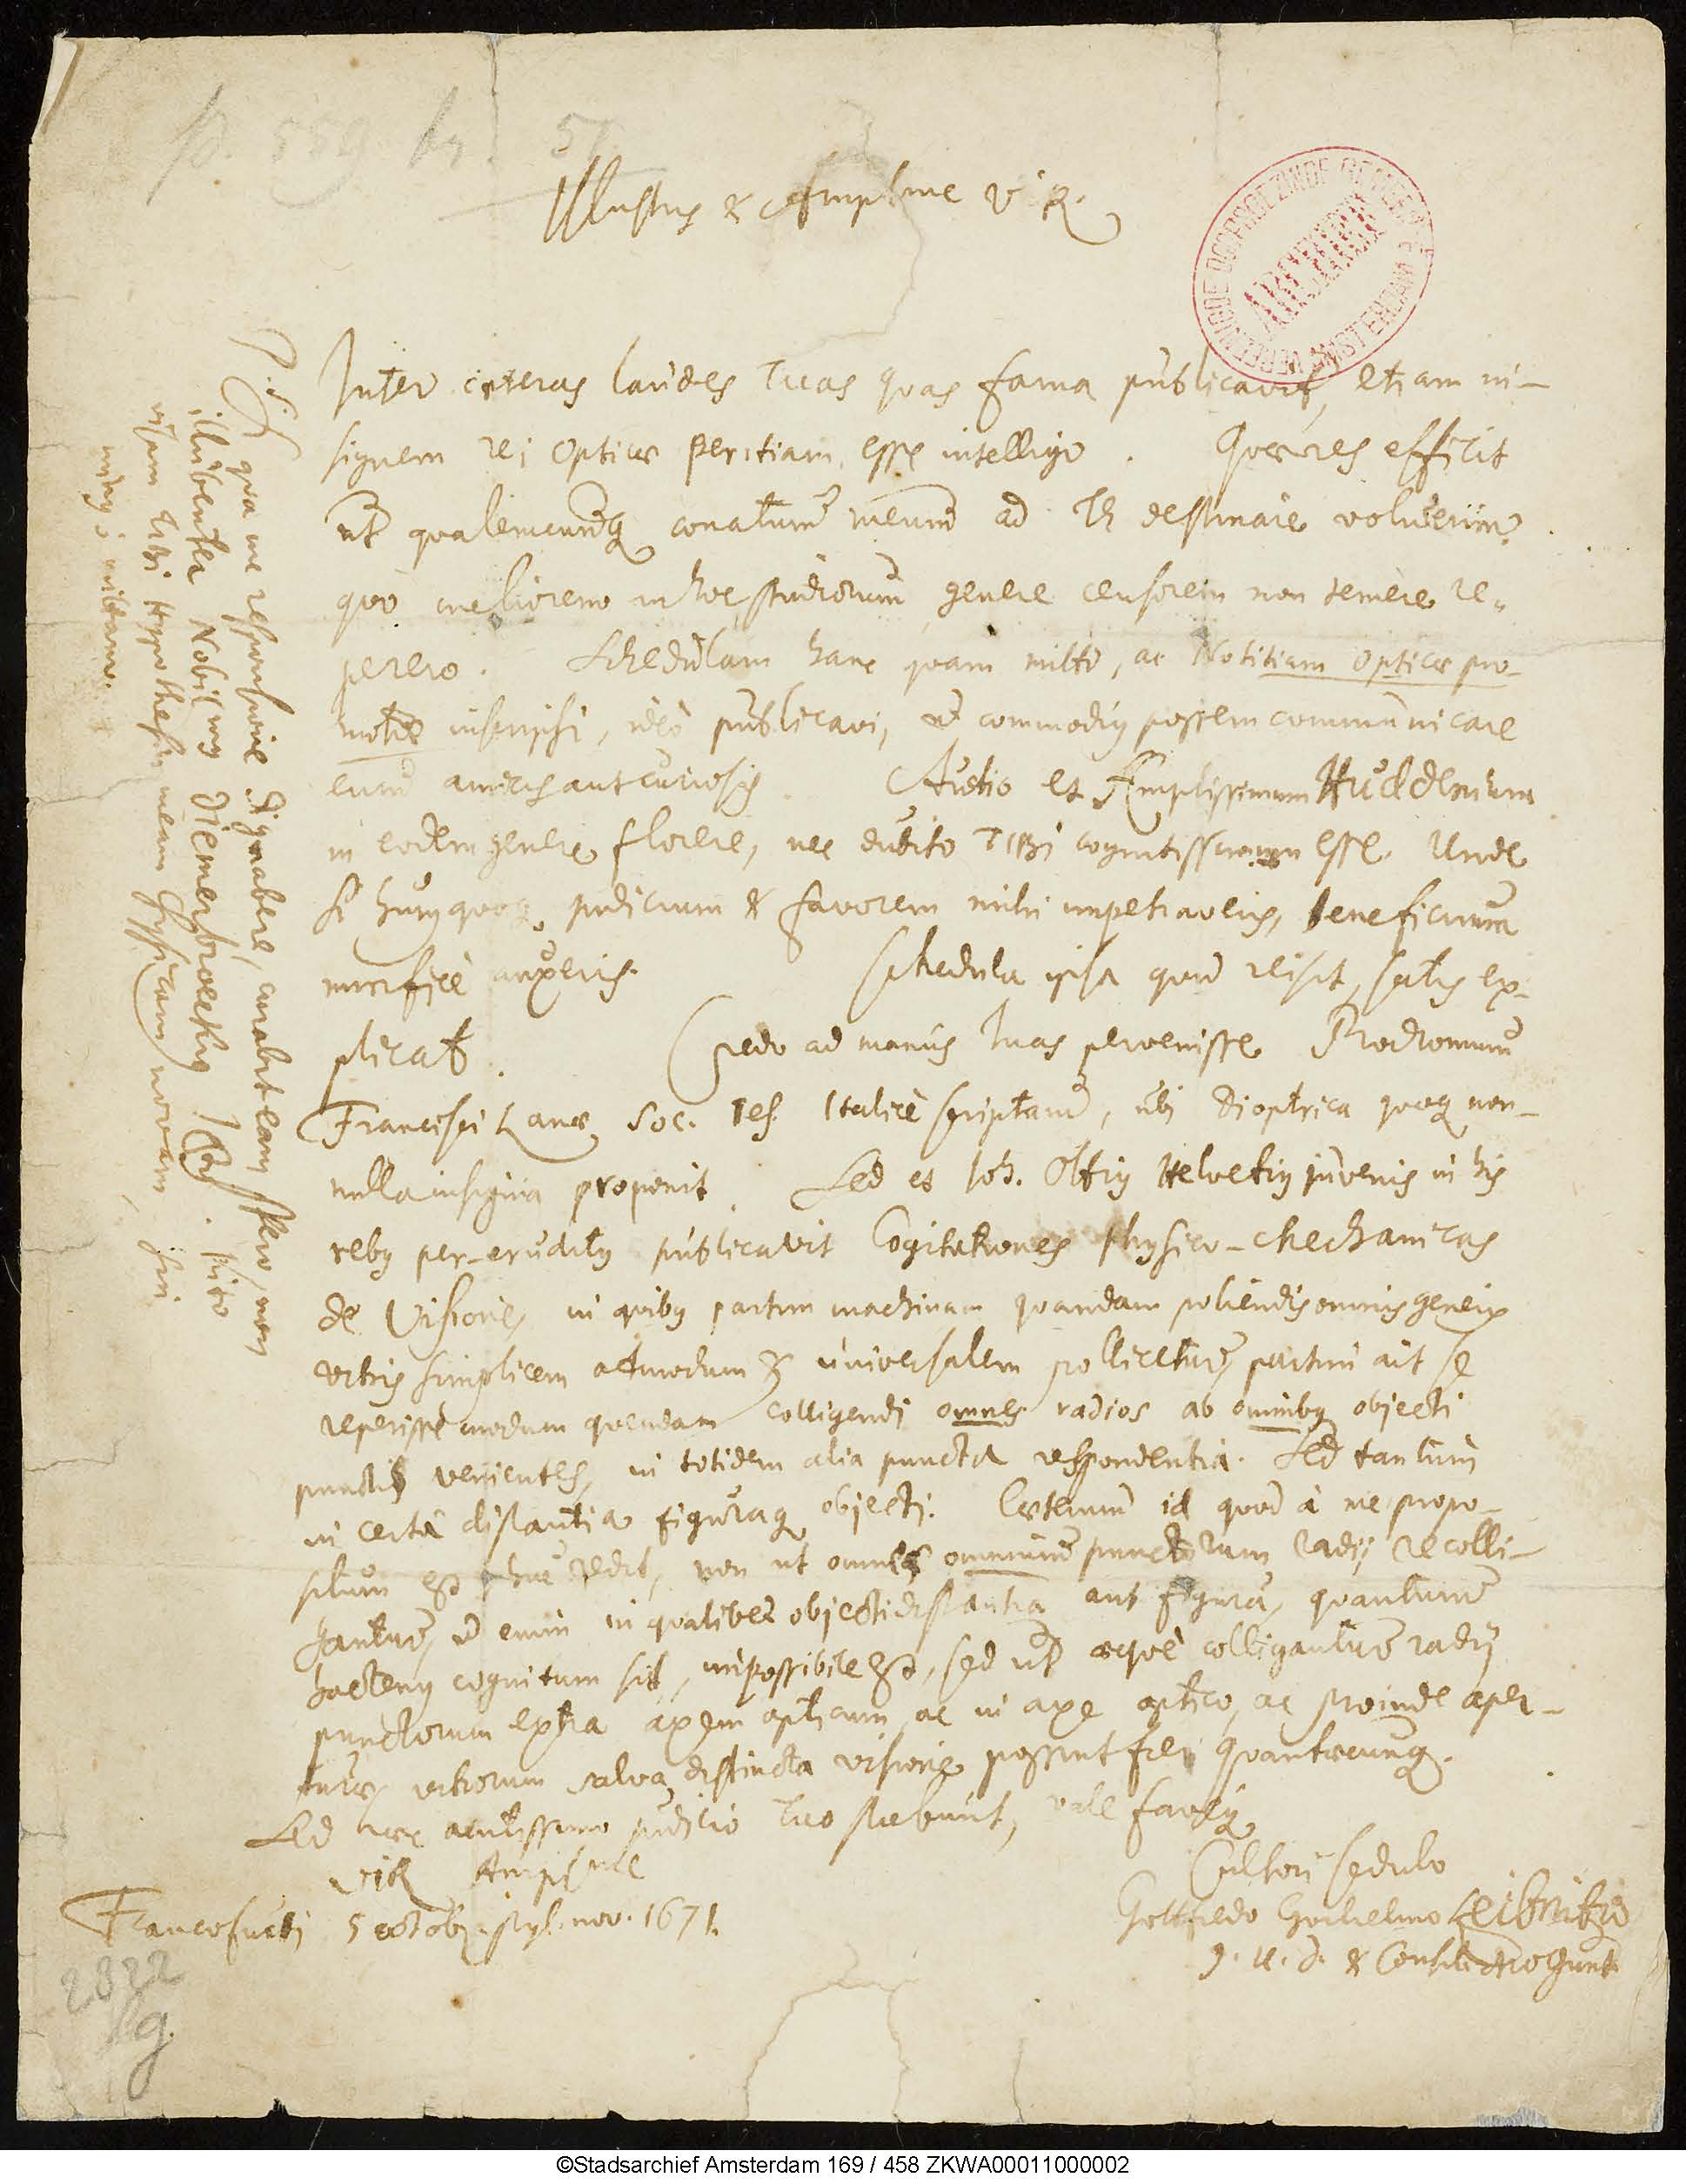 Illustris & Amplme ViR.
Inter cæteras laudes Tuas quas fama publicavit, etiam in-
signem rei Opticæ peritiam esse intelligo. Quæ res effecit
ut qualemcunq conatum meum ad Te destinare voluerim,
quo meliorem in hoc studiorum genere censorem non temere re-
perero. Schedulam hanc quam mitto, ac Notitiam opticæ pro-
motæ inscripsi, ideo publicavi, ut commodius possem communicare
cum amicis aut curiosis. Audio et Amplissimum Huddenium
in eodem genere florere, nec dubito TIBI cognitissimum esse. Unde
si hujus quoq judicium & favorem mihi impetraveris, beneficium
mirificè auxeris. Schedula ipsa quid rei sit, satis ex-
plicat. Credo ad manus Tuas pervenisse Prodromum
Francisci Lanæ Soc. Jes. Italicè scriptum, ubi Dioptrica quoq non-
nulla insignia proponit. Sed et Joh. Oltius Helvetius juvenis in his
rebus per-eruditus publicavit Cogitationes Physico-Mechanicas
de Visione, in quibus partim machinam quandam poliendis omnis generis
vitris simplicem admodum & universalem pollicetur, partim ait se
reperisse modum quendam colligendi omnes radios ab omnibus objecti
punctis venientes, in totidem alia puncta respondentia. Sed tantum
in certa distantia figuraq objecti. Cæterum id quod à me propo-
situm est huc redit, non ut omnes omnium punctorum radij recolli-
gantur, id enim in qualibet objecti distantia aut figura, quantum
hactenus cognitum sit, impossibile est, sed ut æquè colligantur radij
punctorum extra axem opticum, ac in axe optico, ac proinde aper-
turæ vitrorum salva distincta visione possint fieri quantæcunq.
Sed hæc acutissimo judicio Tuo stabunt, vale faveq
ViR Ampl^me
Cultori sedulo
Gottfredo Guilielmo Leibnitio
J. U. D. & Consil. Mogunt.
Francofurti 5 octobr. styl. nov. 1671.
P.S.
Si qua me responsione dignabere, curabit eam spero, non
illubenter Nobilmus Diemerbroekius
vitam Tibi Hypothesin meam physicam novam, si
minus mittam.
p. 559
2822
g
VEREENIGDE DOOPSGEZINDE GEMEENTE AMSTERDAM
ARCHIEF
©Stadsarchief Amsterdam 169 / 458 ZKWA00011000002